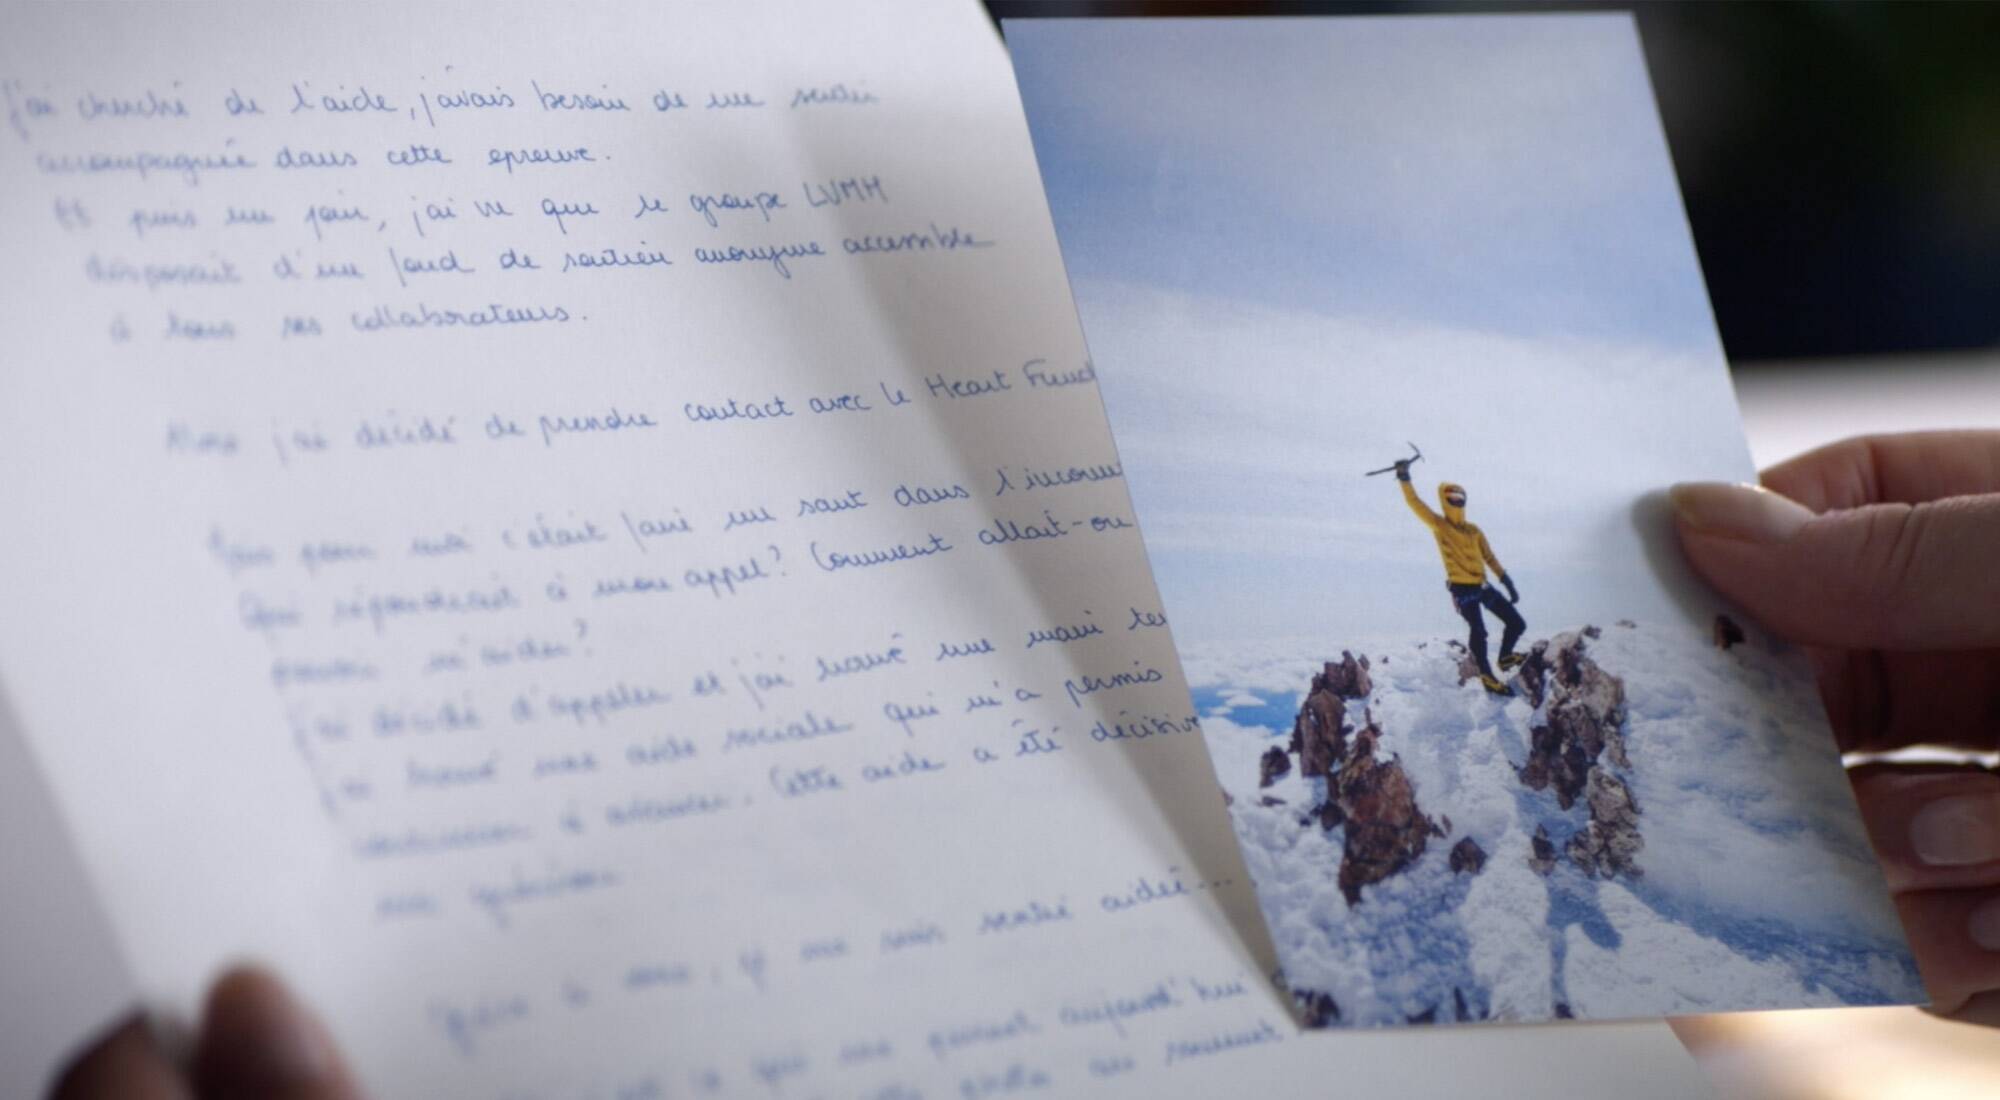 J'ai cherché de l'aide, j'avais besoin de me sentir
accompagnée dans cette epreuve.
Et puis un jour, j'ai vu que le groupe LVMH
disposait d'un fond de soutien anonyme accessible
à tous ses collaborateurs.
Alors j'ai décidé de prendre contact avec le Heart Fund
pour moi c'était faire un saut dans l'inconnu
Qui répondrait à mon appel? Comment allait-on
pouvoir m'aider?
J'ai décidé d'appeler et j'ai trouvé une main
J'ai trouvé une aide sociale qui m'a permis
à avancer. Cette aide a été décisive
Grâce à vous, je me suis sentie aidée...
ce qui me permet aujourd'hui
cette photo au sommet